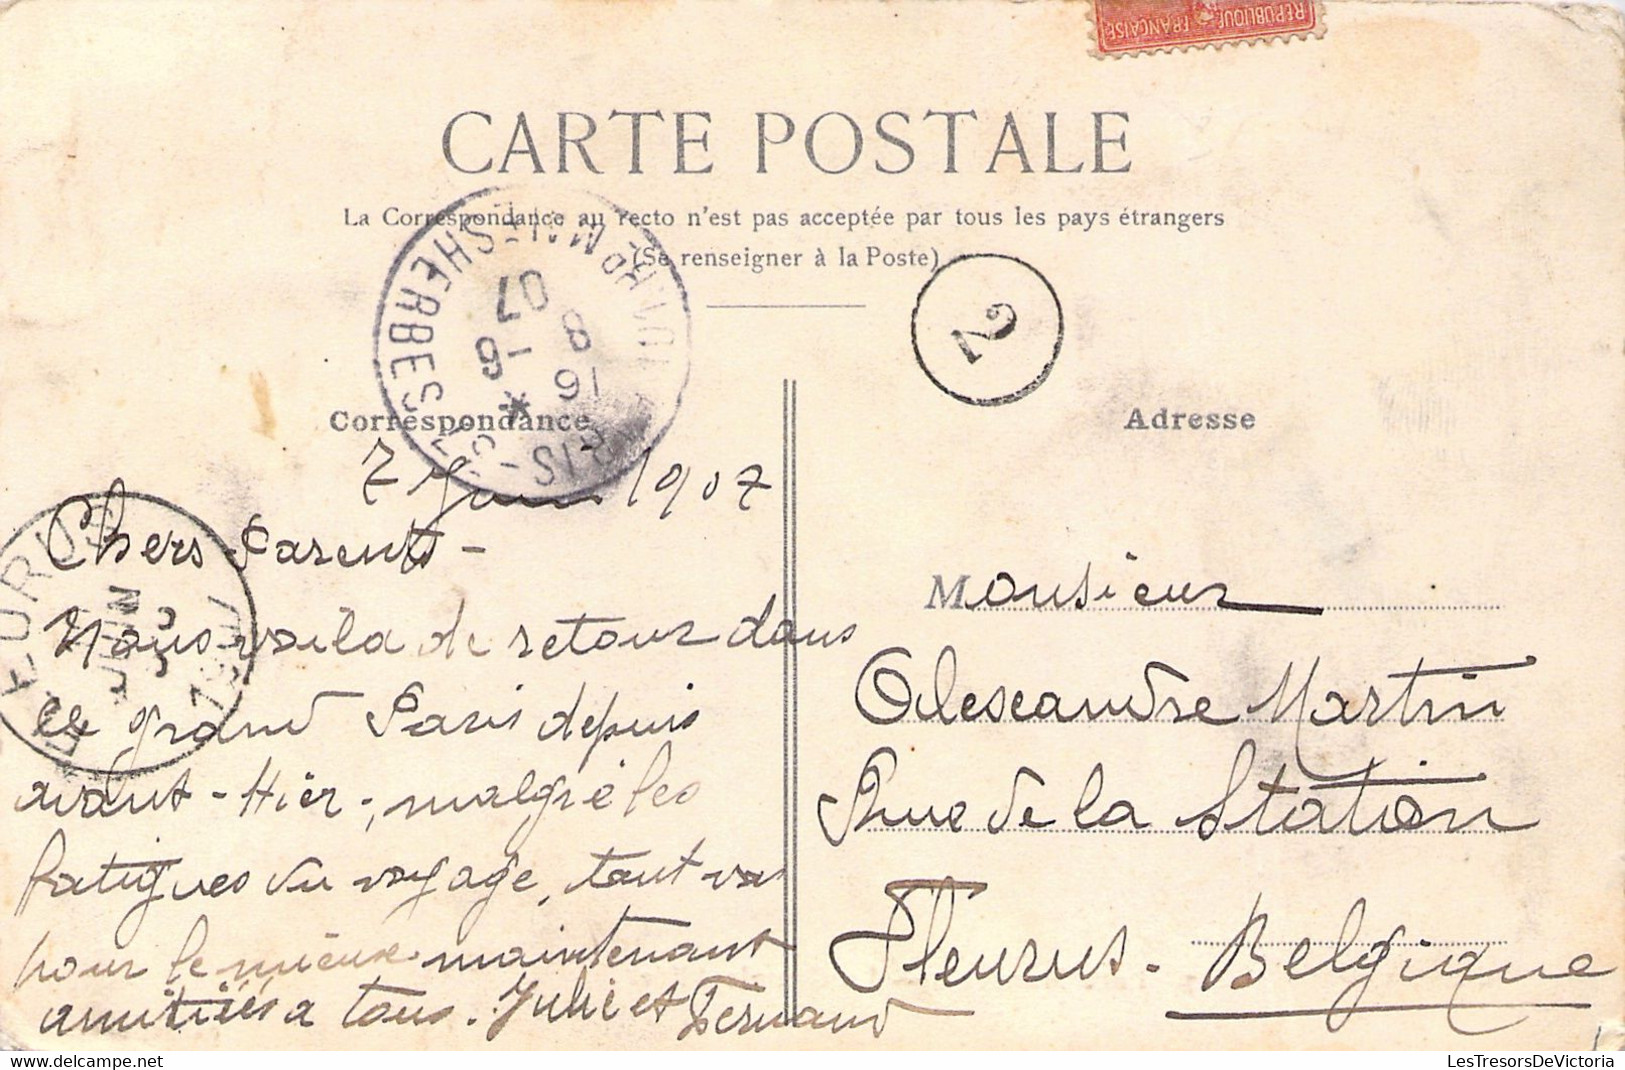 RÉPUBLIQUE FRANÇAISE
CARTE POSTALE
La Correspondance au recto n'est pas acceptée par tous les pays étrangers
(Se renseigner à la Poste)
2
Correspondance
Adresse
7 Juin 1907
Chers Parents -
Nous voila de retour dans
le grand Paris depuis
avant-Hier, malgré les
fatigues du voyage, tout va
pour le mieux maintenant
amitiés a tous. Julie et Fernand
Monsieur
Alexandre Martin
Rue de la Station
Fleurus - Belgique
8 - 6
07
16
FLEURUS
JUIN
1907
les-tresors-de-victoria.delcampe.net
LesTresorsDeVictoria